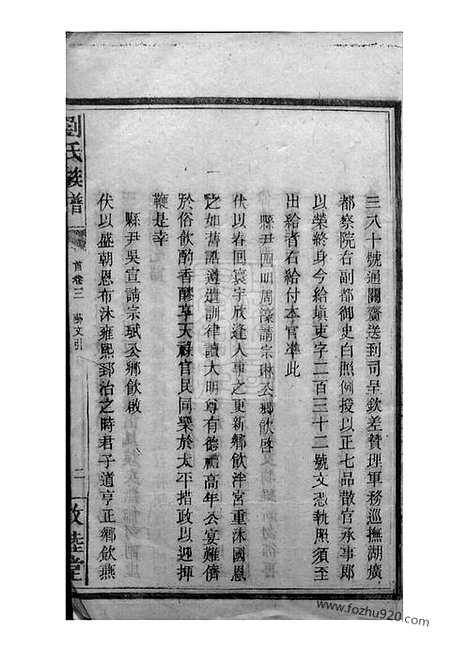 三八十號通關齎送到司呈欽差贊理軍務巡撫湖廣
都察院右副都御史白照例授以正七品散官承事郎
以榮終身今給填吏字二百三十二號文憑執照須至
出給者右給付本官準此
縣尹四明周濠請宗琳公鄉飲啓
伏以春回寰宇欣逢人事之更新鄉飲泮宮重沐國恩
之如舊謹遵遺訓律讀大明尊有德禮高年公宴難儕
於俗飲酌香醪享天祿官民同樂於太平措政以迎揮
鞭是幸
縣尹吳宣請宗斌公鄉飲啟
伏以盛朝恩布沐雍熙郅治之時君子道亨正鄉飲燕
劉氏族譜
首卷三
文引
二
敦睦堂
www.fozhu920.com